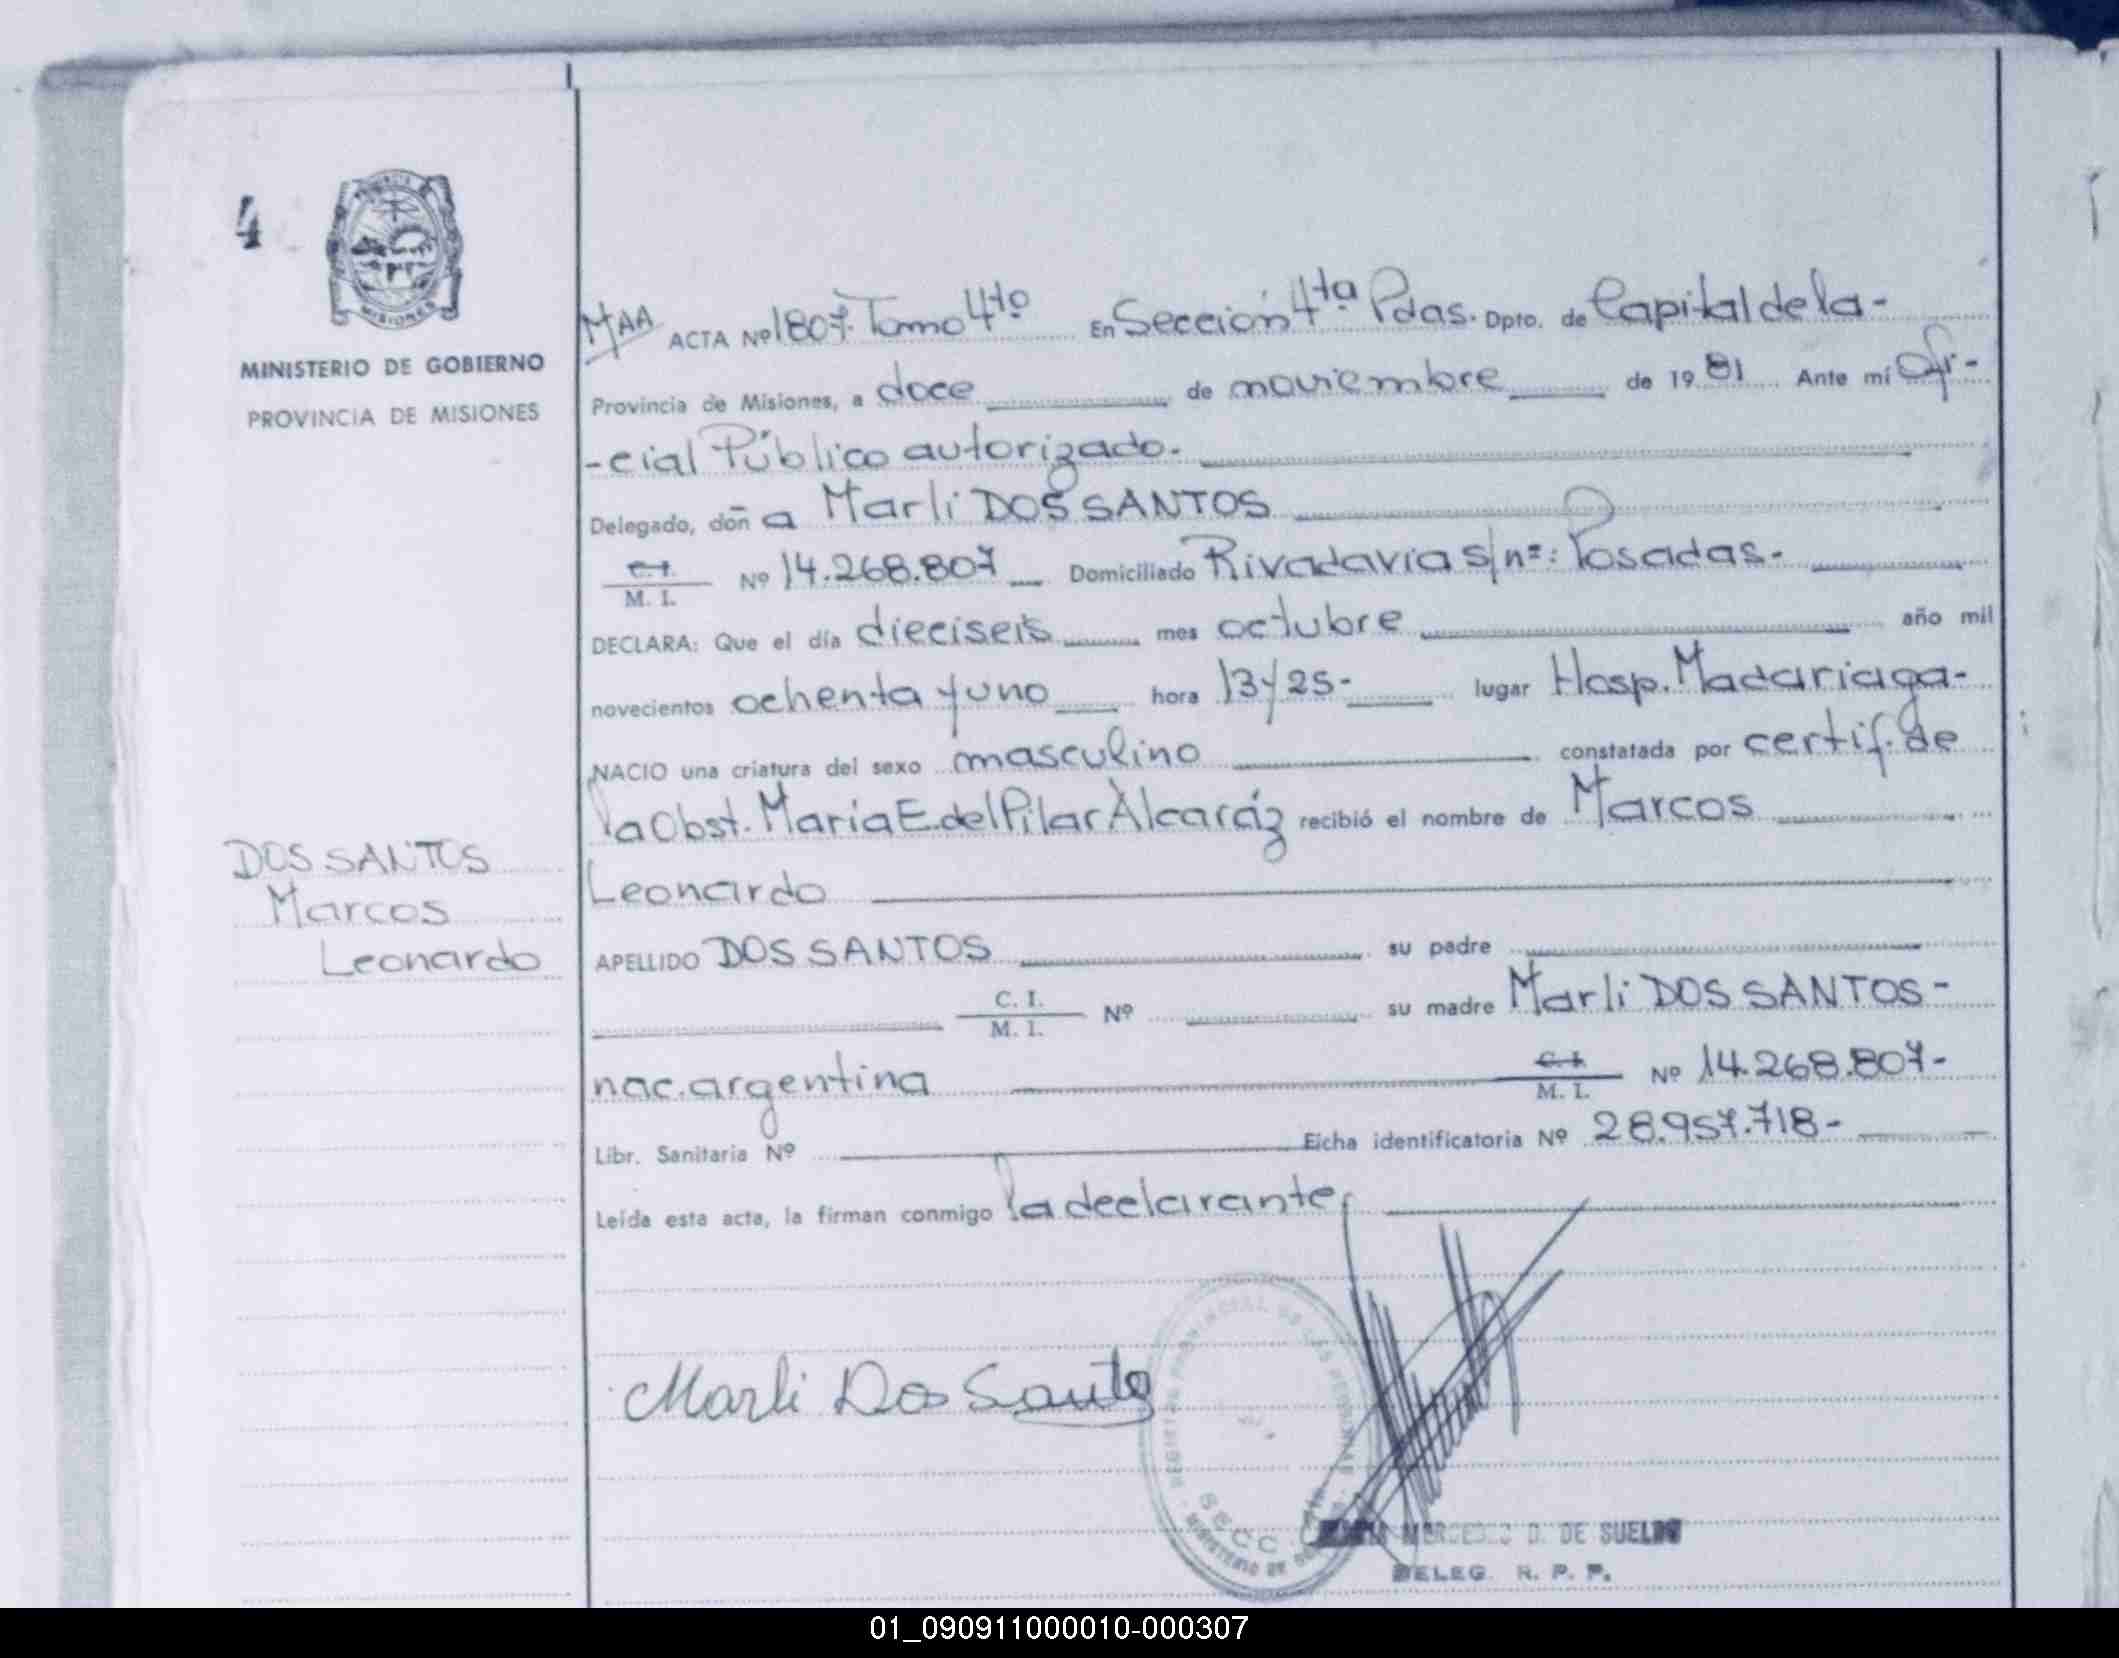 4
MISIONES
MINISTERIO DE GOBIERNO
PROVINCIA DE MISIONES
DOS SANTOS
Marcos
Leonardo
MAA ACTA Nº 1807. Tomo 4to En Sección 4ta Pdas. Dpto. de Capital de la-
Provincia de Misiones, a doce de noviembre de 1981 Ante mí Ofi-
-cial Público autorizado.
Delegado, doña Marli DOS SANTOS
C.I.
M. I. Nº 14.268.807 Domiciliado Rivadavia s/nº: Posadas.
DECLARA: Que el día dieciseis mes octubre año mil
novecientos ochenta y uno hora 13y25- lugar Hosp. Madariaga-
NACIO una criatura del sexo masculino constatada por certif. de
la Obst. María E. del Pilar Alcaráz recibió el nombre de Marcos
Leonardo
APELLIDO DOS SANTOS su padre
C. I.
M. I. Nº su madre Marli DOS SANTOS-
nac. argentina C. I.
M. I. Nº 14.268.807-
Libr. Sanitaria Nº Ficha identificatoria Nº 28.957.718-
Leída esta acta, la firman conmigo la declarante,
Marli Dos Santos
REGISTRO PROVINCIAL DE LAS PERSONAS
SECC.
MINISTERIO DE
MERCEDES D. DE SUELDO
DELEG. R. P. P.
01_090911000010-000307